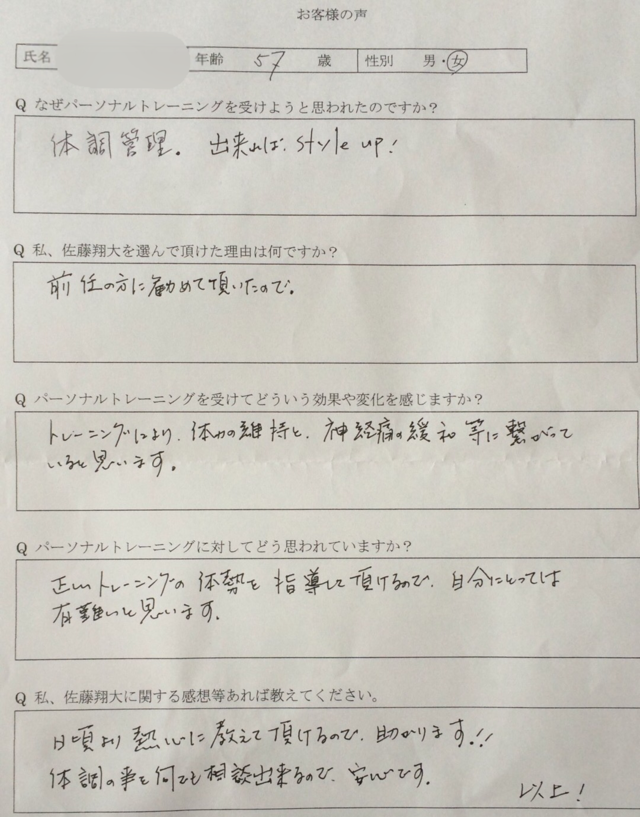 お客様の声
氏名 年齢 57 歳 性別 男・女
Q なぜパーソナルトレーニングを受けようと思われたのですか？
体調管理。出来れば、style up！
Q 私、佐藤翔大を選んで頂けた理由は何ですか？
前任の方に勧めて頂いたので。
Q パーソナルトレーニングを受けてどういう効果や変化を感じますか？
トレーニングにより、体力の維持と、神経痛の緩和等に繋がって
いると思います。
Q パーソナルトレーニングに対してどう思われていますか？
正しいトレーニングの体勢を指導して頂けるので、自分にとっては
有難いと思います。
Q 私、佐藤翔大に関する感想等あれば教えてください。
日頃より熱心に教えて頂けるので、助かります。!!
体調の事を何でも相談出来るので、安心です。
以上！